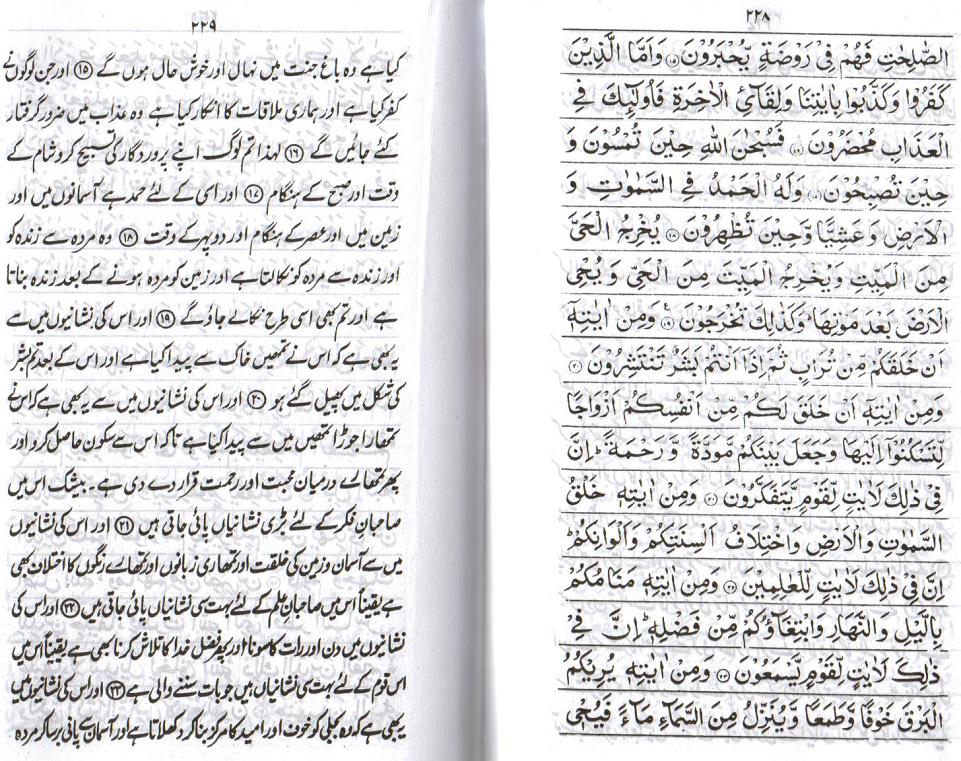 ٢٢٨
الصّٰلِحٰتِ فَهُمْ فِیْ رَوْضَةٍ یُّحْبَرُوْنَ ⑮ وَاَمَّا الَّذِیْنَ
كَفَرُوْا وَكَذَّبُوْا بِاٰیٰتِنَا وَلِقَآئِ الْاٰخِرَةِ فَاُولٰٓئِكَ فِی
الْعَذَابِ مُحْضَرُوْنَ ⑯ فَسُبْحٰنَ اللّٰهِ حِیْنَ تُمْسُوْنَ وَ
حِیْنَ تُصْبِحُوْنَ ⑰ وَلَهُ الْحَمْدُ فِی السَّمٰوٰتِ وَ
الْاَرْضِ وَعَشِیًّا وَّحِیْنَ تُظْهِرُوْنَ ⑱ یُخْرِجُ الْحَیَّ
مِنَ الْمَیِّتِ وَیُخْرِجُ الْمَیِّتَ مِنَ الْحَیِّ وَیُحْیِ
الْاَرْضَ بَعْدَ مَوْتِهَا ؕ وَكَذٰلِكَ تُخْرَجُوْنَ ⑲ وَمِنْ اٰیٰتِهٖٓ
اَنْ خَلَقَكُمْ مِّنْ تُرَابٍ ثُمَّ اِذَآ اَنْتُمْ بَشَرٌ تَنْتَشِرُوْنَ ⑳
وَمِنْ اٰیٰتِهٖٓ اَنْ خَلَقَ لَكُمْ مِّنْ اَنْفُسِكُمْ اَزْوَاجًا
لِّتَسْكُنُوْٓا اِلَیْهَا وَجَعَلَ بَیْنَكُمْ مَّوَدَّةً وَّرَحْمَةً ؕ اِنَّ
فِیْ ذٰلِكَ لَاٰیٰتٍ لِّقَوْمٍ یَّتَفَكَّرُوْنَ ㉑ وَمِنْ اٰیٰتِهٖ خَلْقُ
السَّمٰوٰتِ وَالْاَرْضِ وَاخْتِلَافُ اَلْسِنَتِكُمْ وَاَلْوَانِكُمْ ؕ
اِنَّ فِیْ ذٰلِكَ لَاٰیٰتٍ لِّلْعٰلِمِیْنَ ㉒ وَمِنْ اٰیٰتِهٖ مَنَامُكُمْ
بِالَّیْلِ وَالنَّهَارِ وَابْتِغَآؤُكُمْ مِّنْ فَضْلِهٖ ؕ اِنَّ فِیْ
ذٰلِكَ لَاٰیٰتٍ لِّقَوْمٍ یَّسْمَعُوْنَ ㉓ وَمِنْ اٰیٰتِهٖ یُرِیْكُمُ
الْبَرْقَ خَوْفًا وَّطَمَعًا وَّیُنَزِّلُ مِنَ السَّمَآءِ مَآءً فَیُحْیٖ
٢٢٩
کیا ہے وہ باغ جنت میں نہال اور خوش حال ہوں گے ⑮ اور جن لوگوں نے
کفر کیا ہے اور ہماری ملاقات کا انکار کیا ہے وہ عذاب میں ضرور گرفتار
کئے جائیں گے ⑯ لہذا تم لوگ اپنے پروردگار کی تسبیح کرو شام کے
وقت اور صبح کے ہنگام ⑰ اور اسی کے لئے حمد ہے آسمانوں میں اور
زمین میں اور عصر کے ہنگام اور دوپہر کے وقت ⑱ وہ مردہ سے زندہ کو
اور زندہ سے مردہ کو نکالتا ہے اور زمین کو مردہ ہونے کے بعد زندہ بناتا
ہے اور تم بھی اسی طرح نکالے جاؤ گے ⑲ اور اس کی نشانیوں میں سے
یہ بھی ہے کہ اس نے تمھیں خاک سے پیدا کیا ہے اور اس کے بعد تم بشر
کی شکل میں پھیل گئے ہو ⑳ اور اس کی نشانیوں میں سے یہ بھی ہے کہ اس نے
تمھارا جوڑا تمھیں میں سے پیدا کیا ہے تاکہ اس سے سکون حاصل کرو اور
پھر تمھارے درمیان محبت اور رحمت قرار دے دی ہے۔ بیشک اس میں
صاحبانِ فکر کے لئے بڑی نشانیاں پائی جاتی ہیں ㉑ اور اس کی نشانیوں
میں سے آسمان و زمین کی خلقت اور تمھاری زبانوں اور تمھارے رنگوں کا اختلاف بھی
ہے یقیناً اس میں صاحبانِ علم کے لئے بہت سی نشانیاں پائی جاتی ہیں ㉒ اور اس کی
نشانیوں میں دن اور رات کا سونا اور پھر فضلِ خدا کا تلاش کرنا بھی ہے یقیناً اس میں
اس قوم کے لئے بہت سی نشانیاں ہیں جو بات سننے والی ہے ㉓ اور اس کی نشانیوں میں
یہ بھی ہے کہ وہ بجلی کو خوف اور امید کا مرکز بنا کر دکھلاتا ہے اور آسمان سے پانی برسا کر مردہ